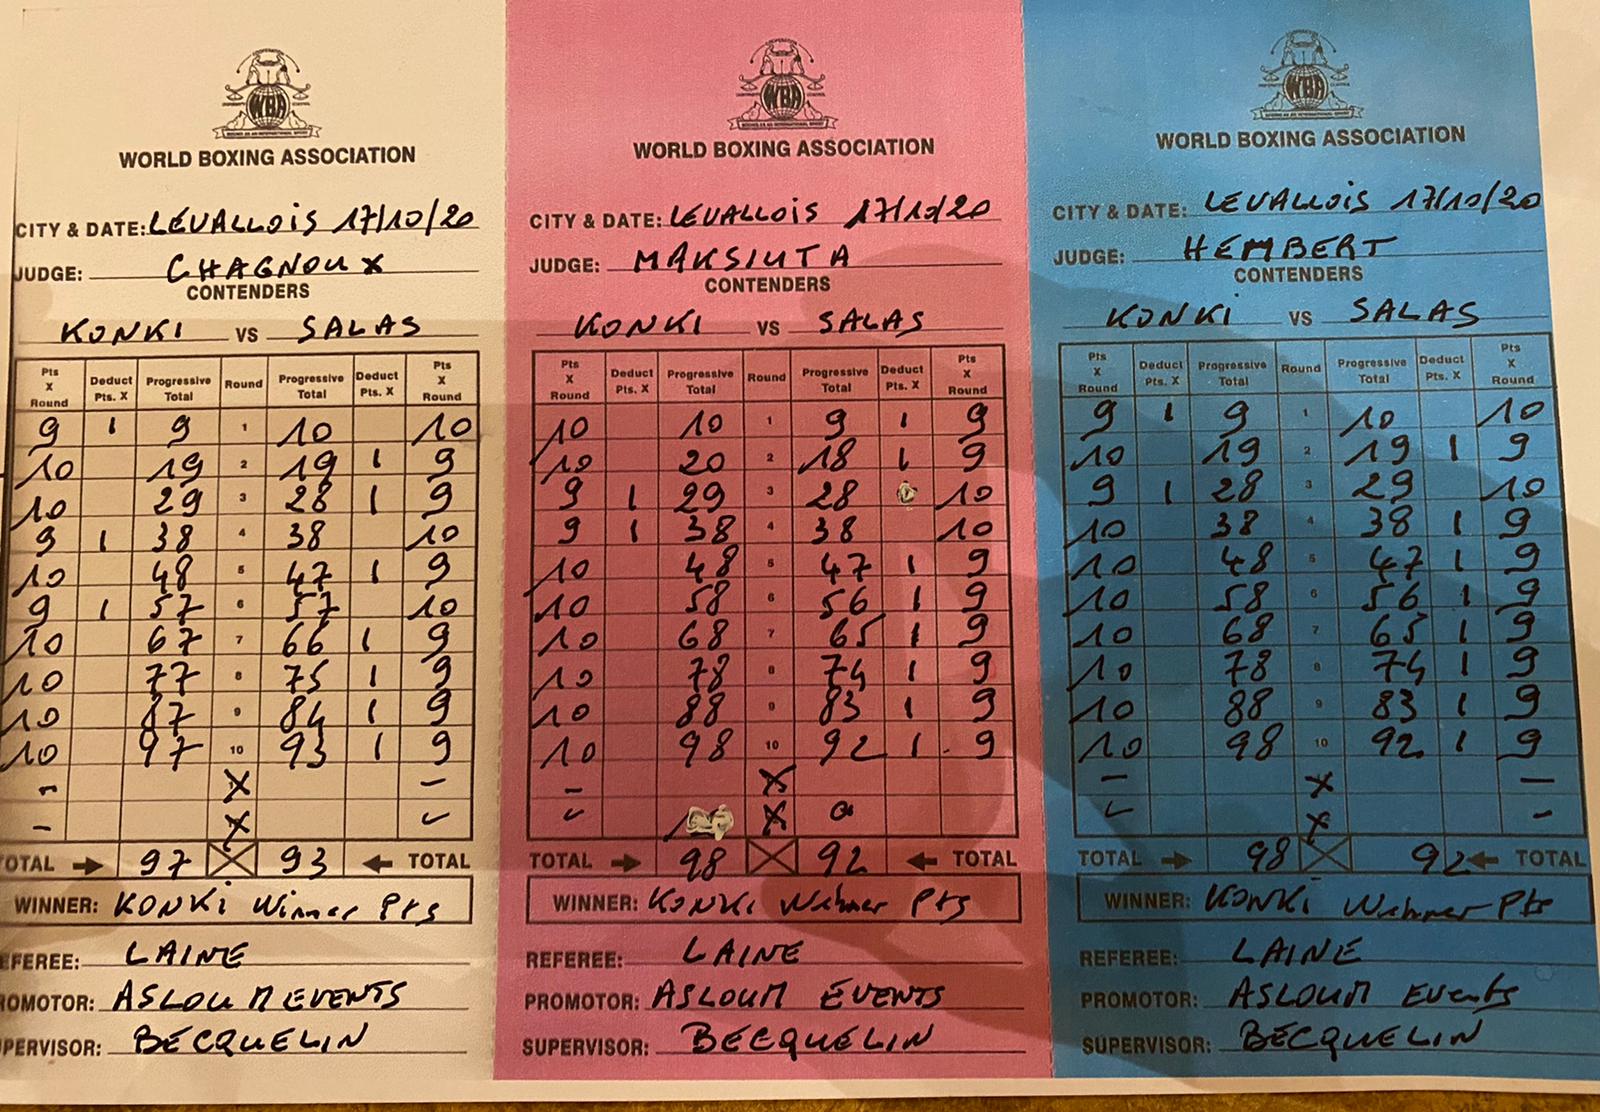 WBA
WORLD BOXING ASSOCIATION
CITY & DATE: LEVALLOIS 17/10/20
JUDGE: CHAGNOUX
CONTENDERS
KONKI VS SALAS
Pts X Round Deduct Pts. X Progressive Total Round Progressive Total Deduct Pts. X Pts X Round
9 1 9 1 10 10
10 19 2 19 1 9
10 29 3 28 1 9
9 1 38 4 38 10
10 48 5 47 1 9
9 1 57 6 57 10
10 67 7 66 1 9
10 77 8 75 1 9
10 87 9 84 1 9
10 97 10 93 1 9
- X -
- X -
OTAL 97 93 TOTAL
WINNER: KONKI Winner Pts
EFEREE: LAINE
ROMOTOR: ASLOUM EVENTS
UPERVISOR: BECQUELIN
WBA
WORLD BOXING ASSOCIATION
CITY & DATE: LEVALLOIS 17/10/20
JUDGE: MAKSIUTA
CONTENDERS
KONKI VS SALAS
Pts X Round Deduct Pts. X Progressive Total Round Progressive Total Deduct Pts. X Pts X Round
10 10 1 9 1 9
10 20 2 18 1 9
9 1 29 3 28 10
9 1 38 4 38 10
10 48 5 47 1 9
10 58 6 56 1 9
10 68 7 65 1 9
10 78 8 74 1 9
10 88 9 83 1 9
10 98 10 92 1 9
- X
- X
TOTAL 98 92 TOTAL
WINNER: KONKI Winner Pts
REFEREE: LAINE
PROMOTOR: ASLOUM EVENTS
SUPERVISOR: BECQUELIN
WBA
WORLD BOXING ASSOCIATION
CITY & DATE: LEVALLOIS 17/10/20
JUDGE: HEMBERT
CONTENDERS
KONKI VS SALAS
Pts X Round Deduct Pts. X Progressive Total Round Progressive Total Deduct Pts. X Pts X Round
9 1 9 1 10 10
10 19 2 19 1 9
9 1 28 3 29 10
10 38 4 38 1 9
10 48 5 47 1 9
10 58 6 56 1 9
10 68 7 65 1 9
10 78 8 74 1 9
10 88 9 83 1 9
10 98 10 92 1 9
- X -
- X -
TOTAL 98 92 TOTAL
WINNER: KONKI Winner Pts
REFEREE: LAINE
PROMOTOR: ASLOUM Events
SUPERVISOR: BECQUELIN